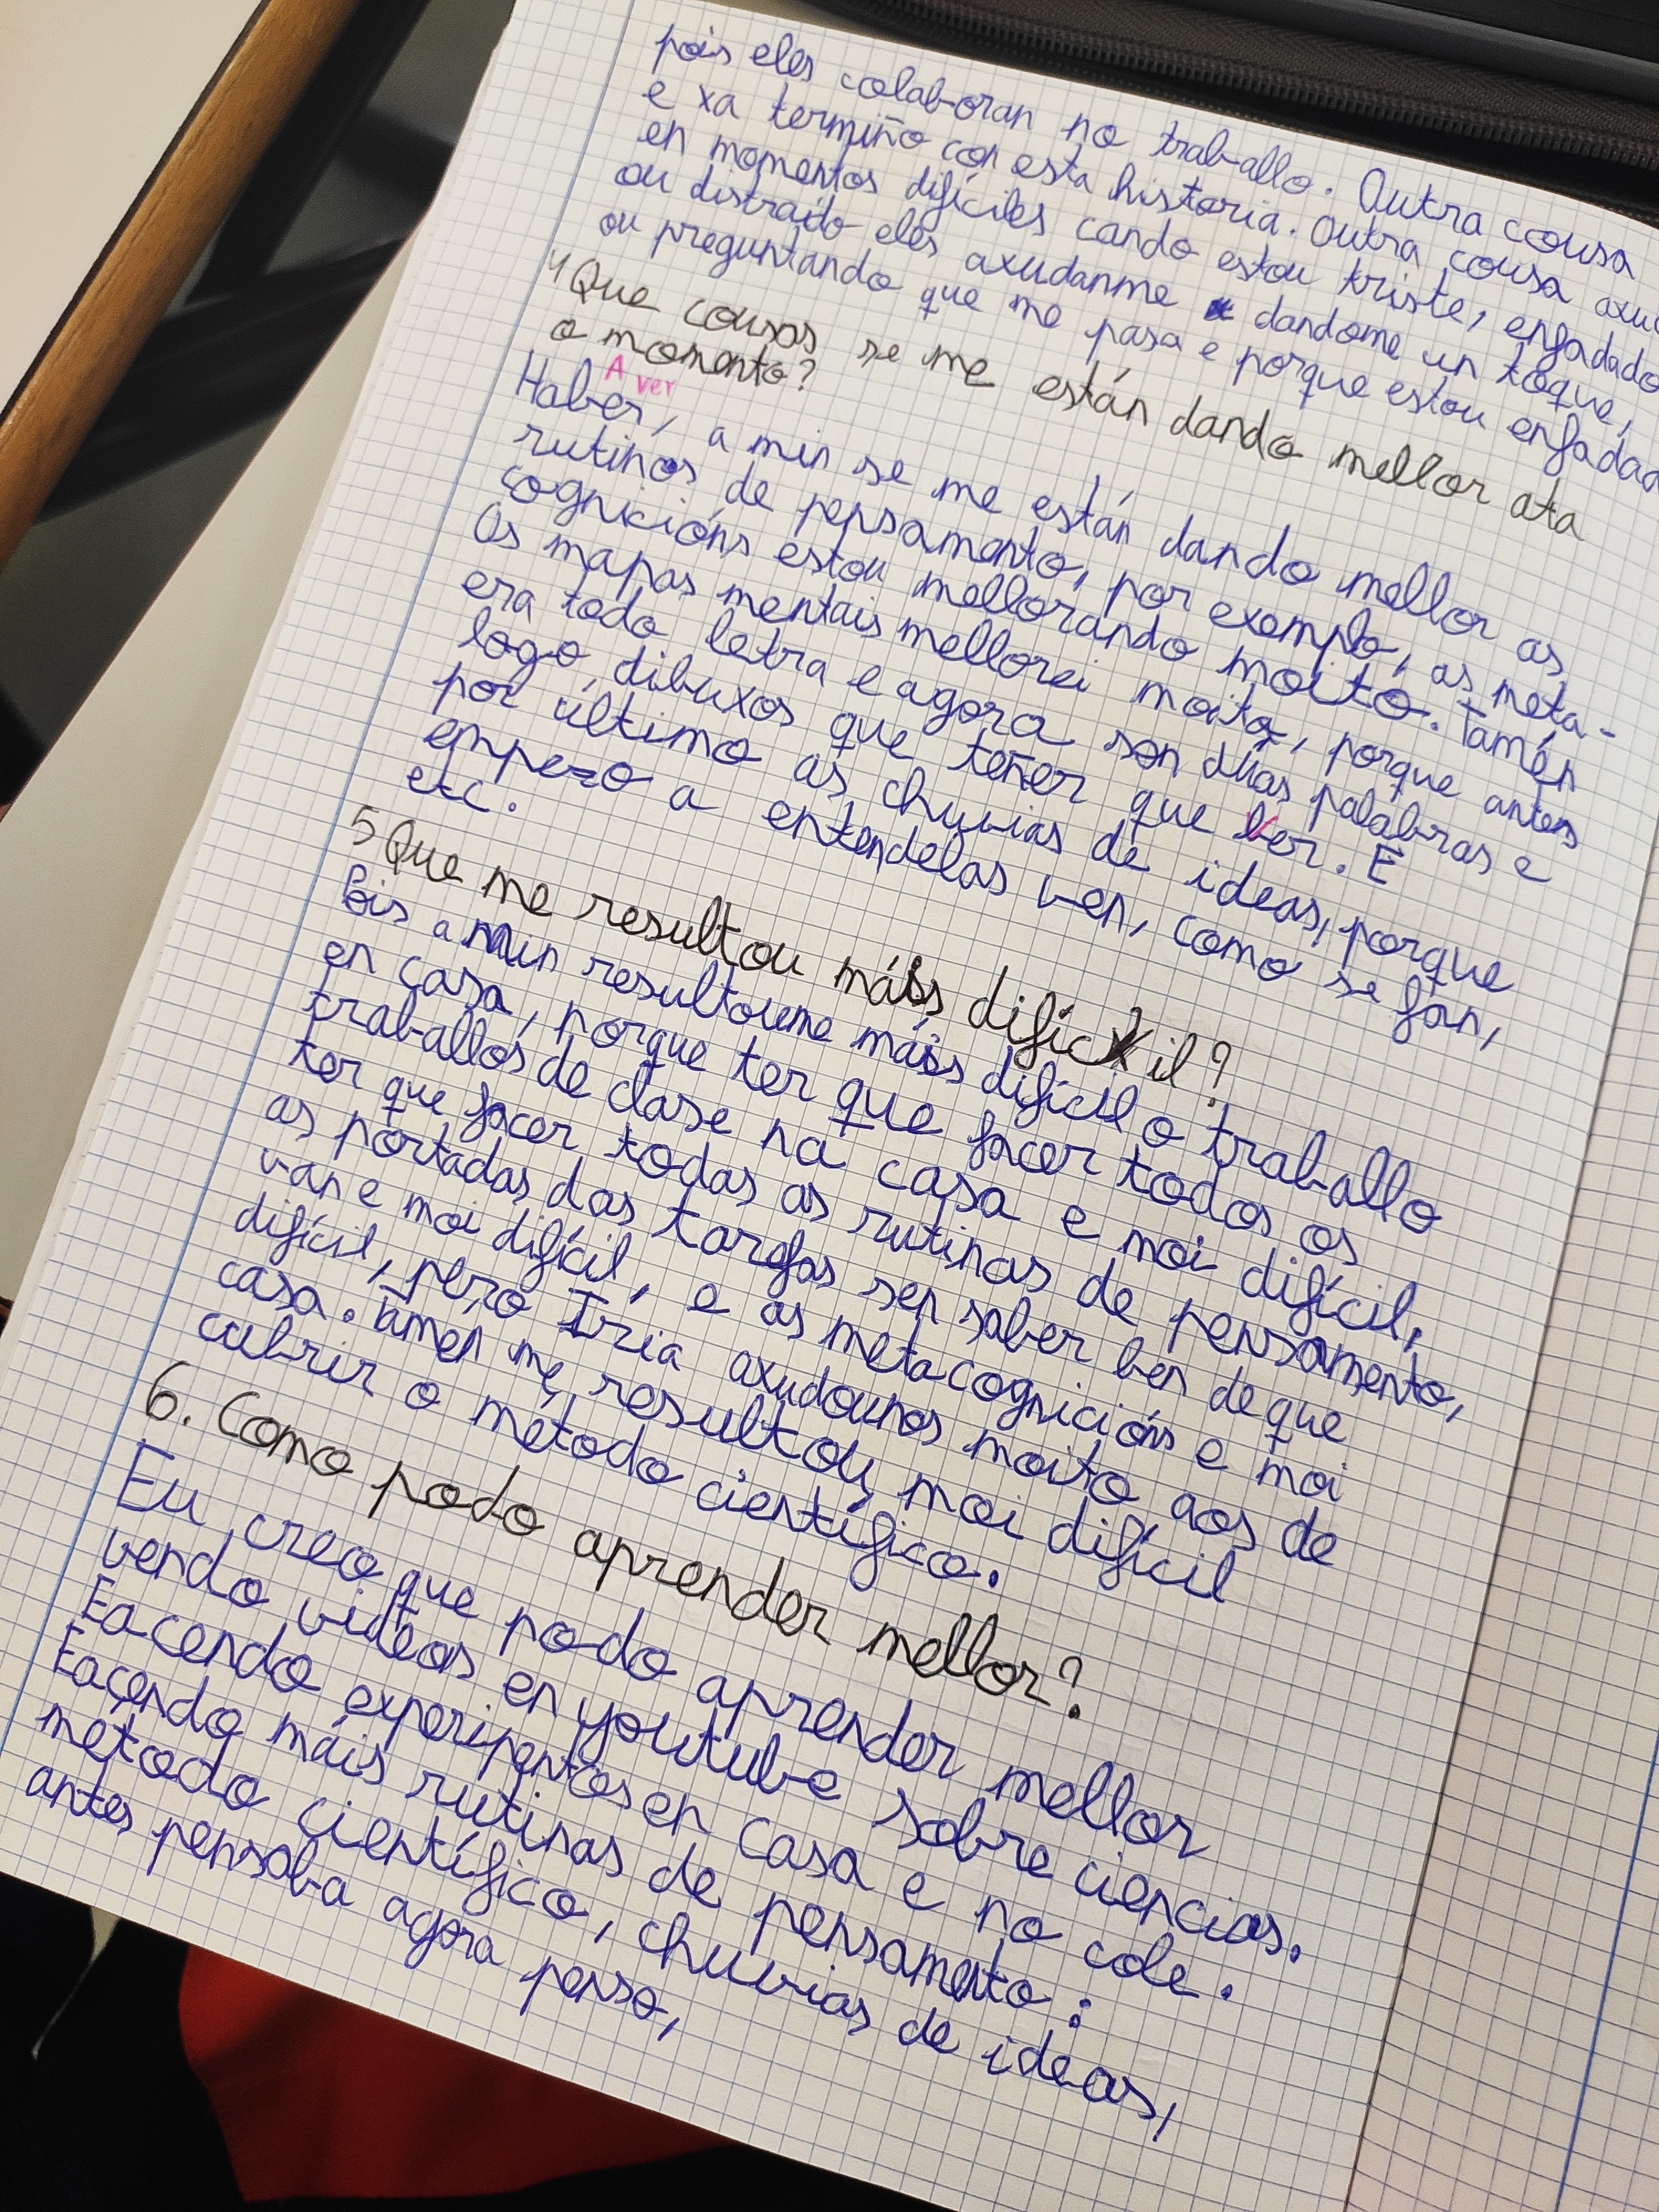 pois eles colaboran no traballo. Outra cousa
e xa termiño con esta historia. Outra cousa
en momentos difíciles cando estou triste, enfadado
ou distraído eles axudanme dandome un toque,
ou preguntando que me pasa e porque estou
4 Que cousas se me están dando mellor ata
o momento?
A ver
Haber, a min se me están dando mellor as
rutinas de pensamento, por exemplo, as meta-
cognicións estou mellorando moito. Tamén
Os mapas mentais mellorei moito, porque antes
era todo letra e agora son dúas palabras e
logo, dibuxos que teñer que ver. E
por último as chuvias de ideas, porque
empezo a entendelas ven, como se fan,
etc.
5 Que me resultou máis difícil?
Pois a min resultoume máis difícil o traballo
en casa, porque ter que facer todos os
traballos de clase na casa e moi difícil,
ter que facer todas as rutinas de pensamento,
as portadas das tarefas sen saber ben de que
van e moi difícil, e as metacognicións e moi
difícil, pero Iria axudounos moito aos de
casa. Tamen me resultou moi difícil
cubrir o método científico.
6. Como podo aprender mellor?
Eu creo que podo aprender mellor
vendo videos en youtube sobre ciencias.
Facendo experimentos en casa e no cole.
Facendo máis rutinas de pensamento:
método científico, chuvias de ideas,
antes pensaba agora penso,